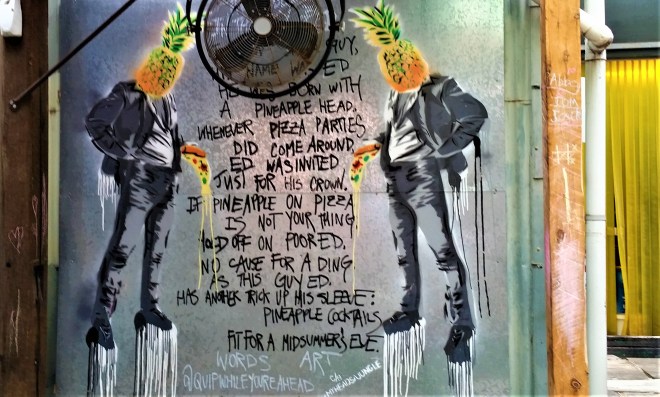 GUY,
NAME WAS ED
HE WAS BORN WITH
A PINEAPPLE HEAD.
WHENEVER PIZZA PARTIES
DID COME AROUND,
ED WAS INVITED
JUST FOR HIS CROWN.
IF PINEAPPLE ON PIZZA
IS NOT YOUR THING
HOLD OFF ON POOR ED.
NO CAUSE FOR A DING
AS THIS GUY ED
HAS ANOTHER TRICK UP HIS SLEEVE:
PINEAPPLE COCKTAILS,
FIT FOR A MIDSUMMER'S EVE.
WORDS ART
@QUIPWHILEYOUREAHEAD